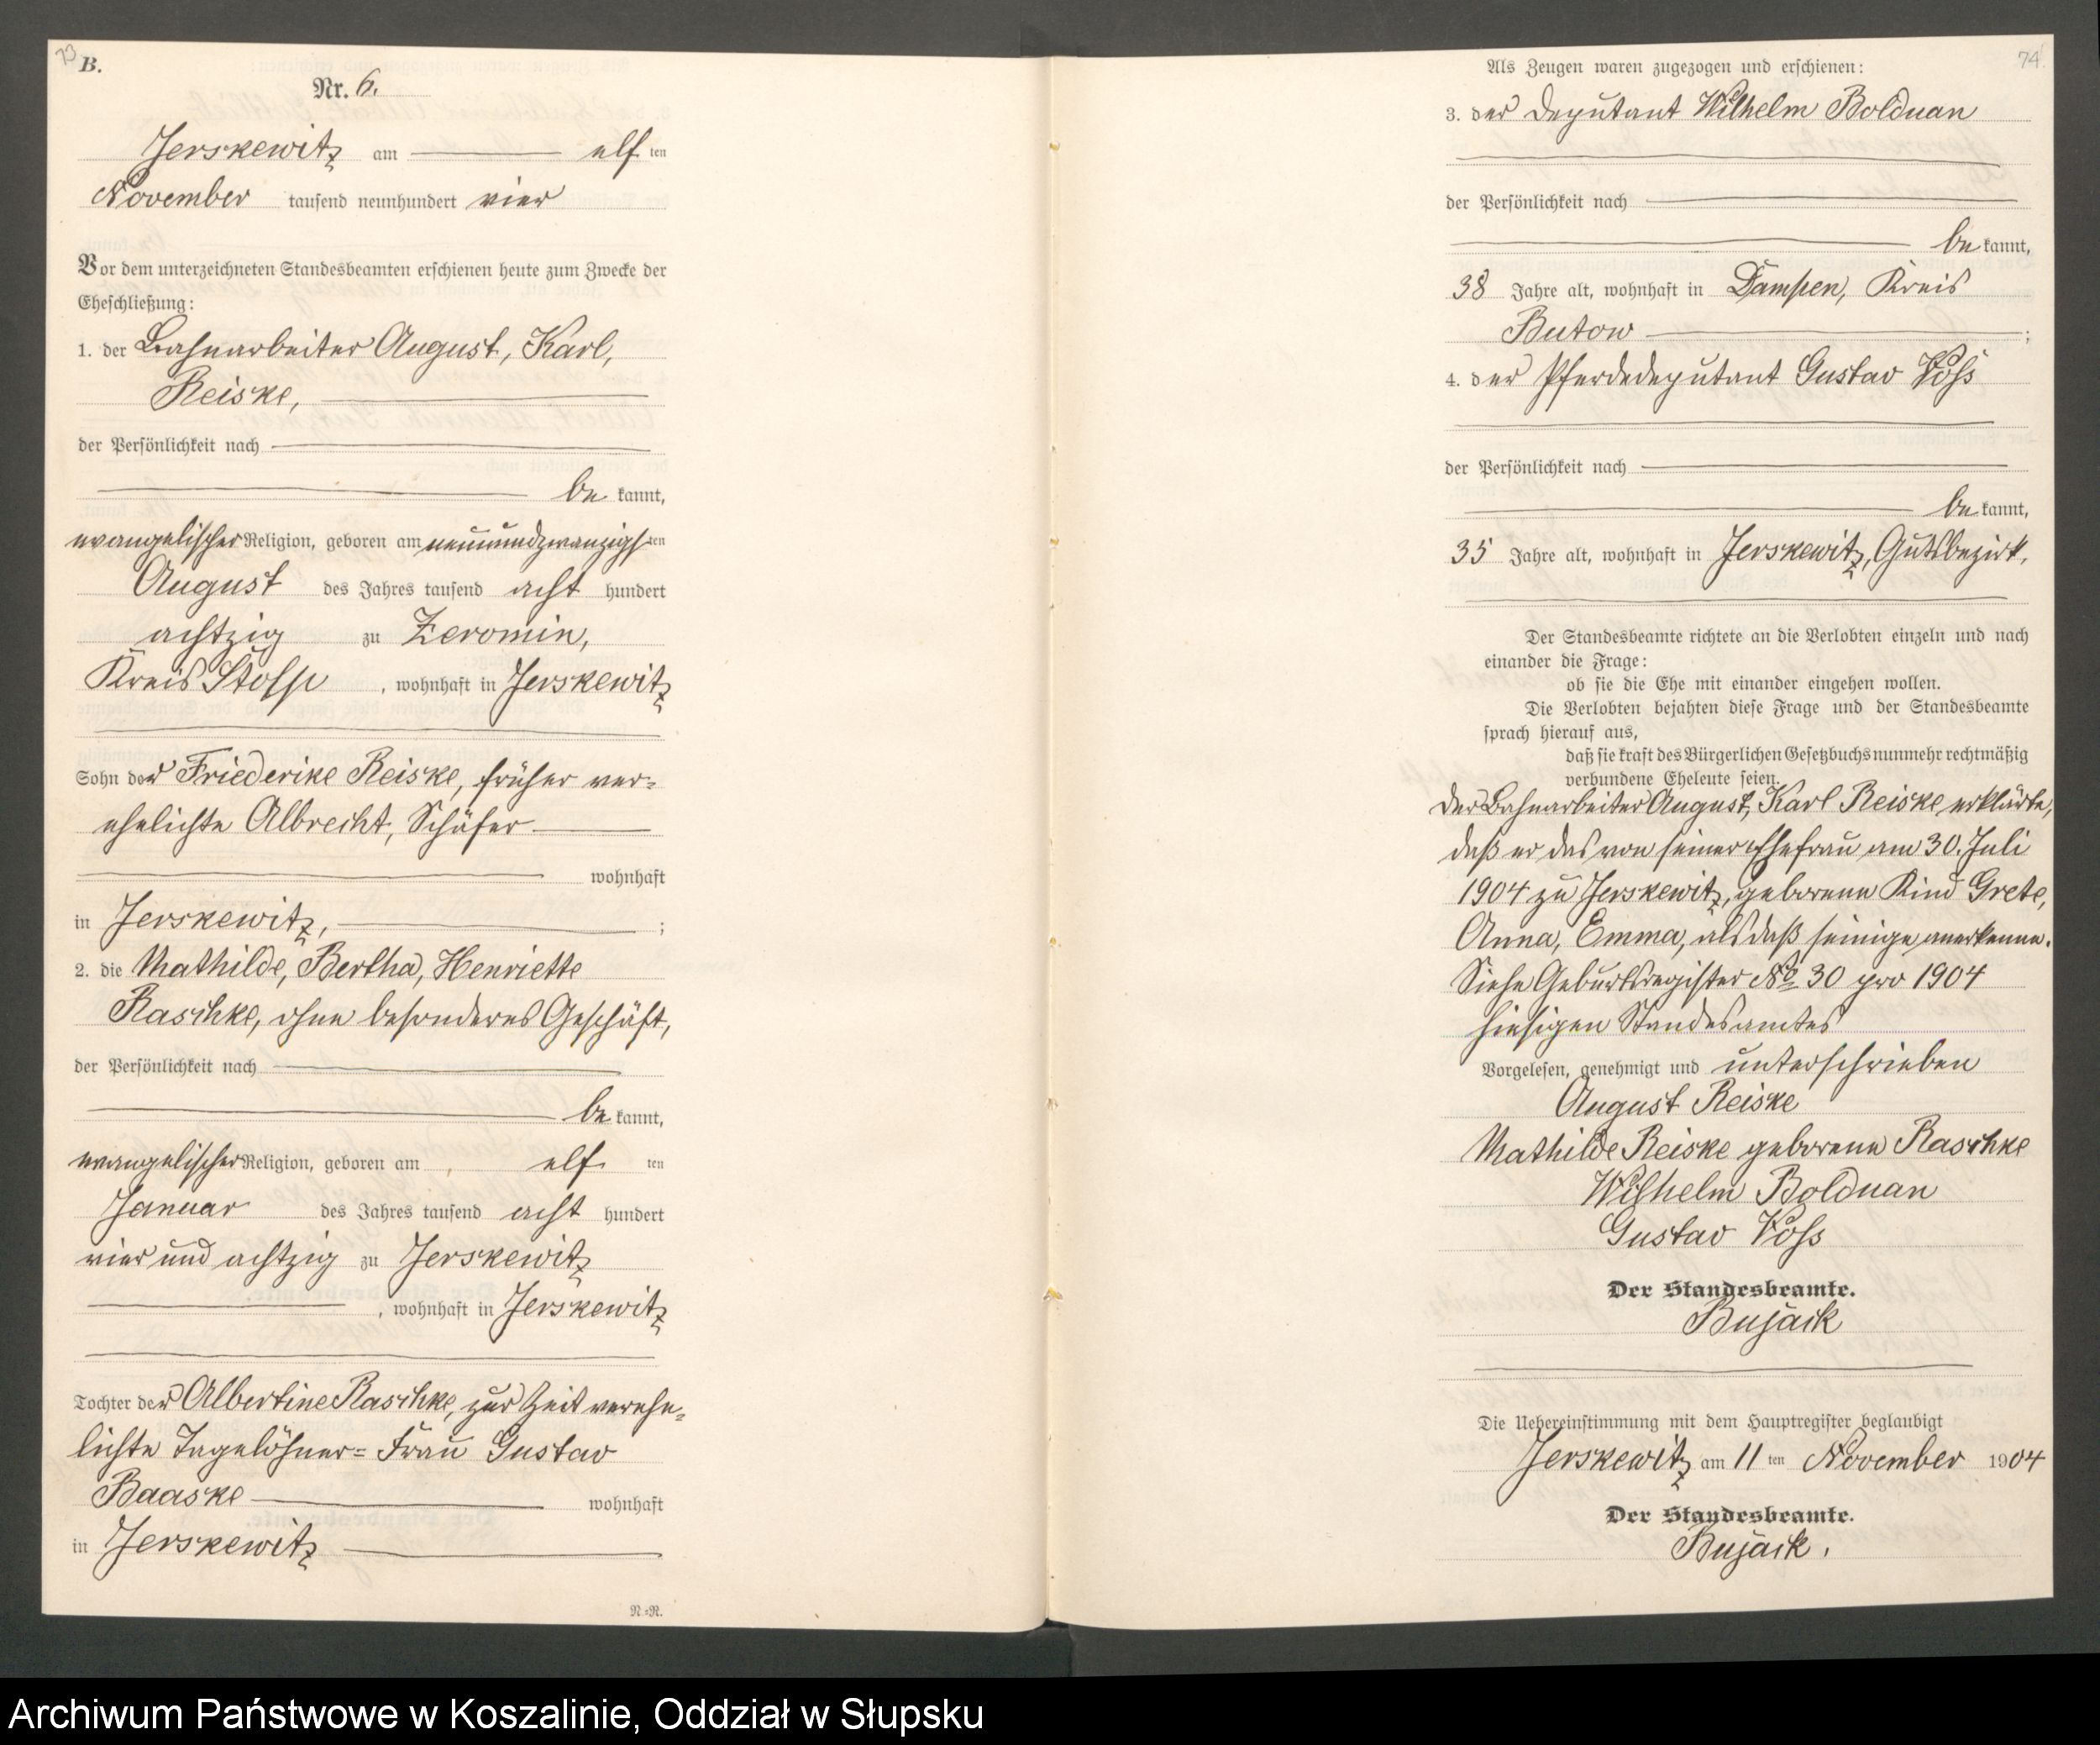 73
B.
Nr. 6.
Jerskewitz am elf ten
November tausend neunhundert vier
Vor dem unterzeichneten Standesbeamten erschienen heute zum Zwecke der
Eheschließung:
1. der Bahnarbeiter August, Karl,
Reiske,
der Persönlichkeit nach
be kannt,
evangelischer Religion, geboren am neunundzwanzigs ten
August des Jahres tausend acht hundert
achtzig zu Zeromin,
Kreis Stolp, wohnhaft in Jerskewitz
Sohn der Friederike Reiske, früher ver=
ehelichte Albrecht, Schäfer
wohnhaft
in Jerskewitz, ;
2. die Mathilde, Bertha, Henriette
Raschke, ohne besonderes Geschäft,
der Persönlichkeit nach
be kannt,
evangelischer Religion, geboren am elf ten
Januar des Jahres tausend acht hundert
vier und achtzig zu Jerskewitz
, wohnhaft in Jerskewitz
Tochter der Albertine Raschke, zur Zeit verehe=
lichte Tagelöhner= Frau Gustav
Baaske wohnhaft
in Jerskewitz
N=R.
74
Als Zeugen waren zugezogen und erschienen:
3. der Deputant Wilhelm Bolduan
der Persönlichkeit nach
be kannt,
38 Jahre alt, wohnhaft in Dampen, Kreis
Butow ;
4. der Pferdedeputant Gustav Voss
der Persönlichkeit nach
be kannt,
35 Jahre alt, wohnhaft in Jerskewitz, Gutsbezirk.
Der Standesbeamte richtete an die Verlobten einzeln und nach
einander die Frage:
ob sie die Ehe mit einander eingehen wollen.
Die Verlobten bejahten diese Frage und der Standesbeamte
sprach hierauf aus,
daß sie kraft des Bürgerlichen Gesetzbuchs nunmehr rechtmäßig
verbundene Eheleute seien.
Der Bahnarbeiter August, Karl Reiske erklärte,
daß er das von seiner Ehefrau am 30. Juli
1904 zu Jerskewitz, geborene Kind Grete,
Anna, Emma, als daß seinige anerkenne.
Siehe Geburtsregister No 30 pro 1904
hiesigen Standesamtes
Vorgelesen, genehmigt und unterschrieben
August Reiske
Mathilde Reiske geborene Raschke
Wilhelm Bolduan
Gustav Voss
Der Standesbeamte.
Bujack
Die Uebereinstimmung mit dem Hauptregister beglaubigt
Jerskewitz am 11 ten November 1904
Der Standesbeamte.
Bujack.
Archiwum Państwowe w Koszalinie, Oddział w Słupsku